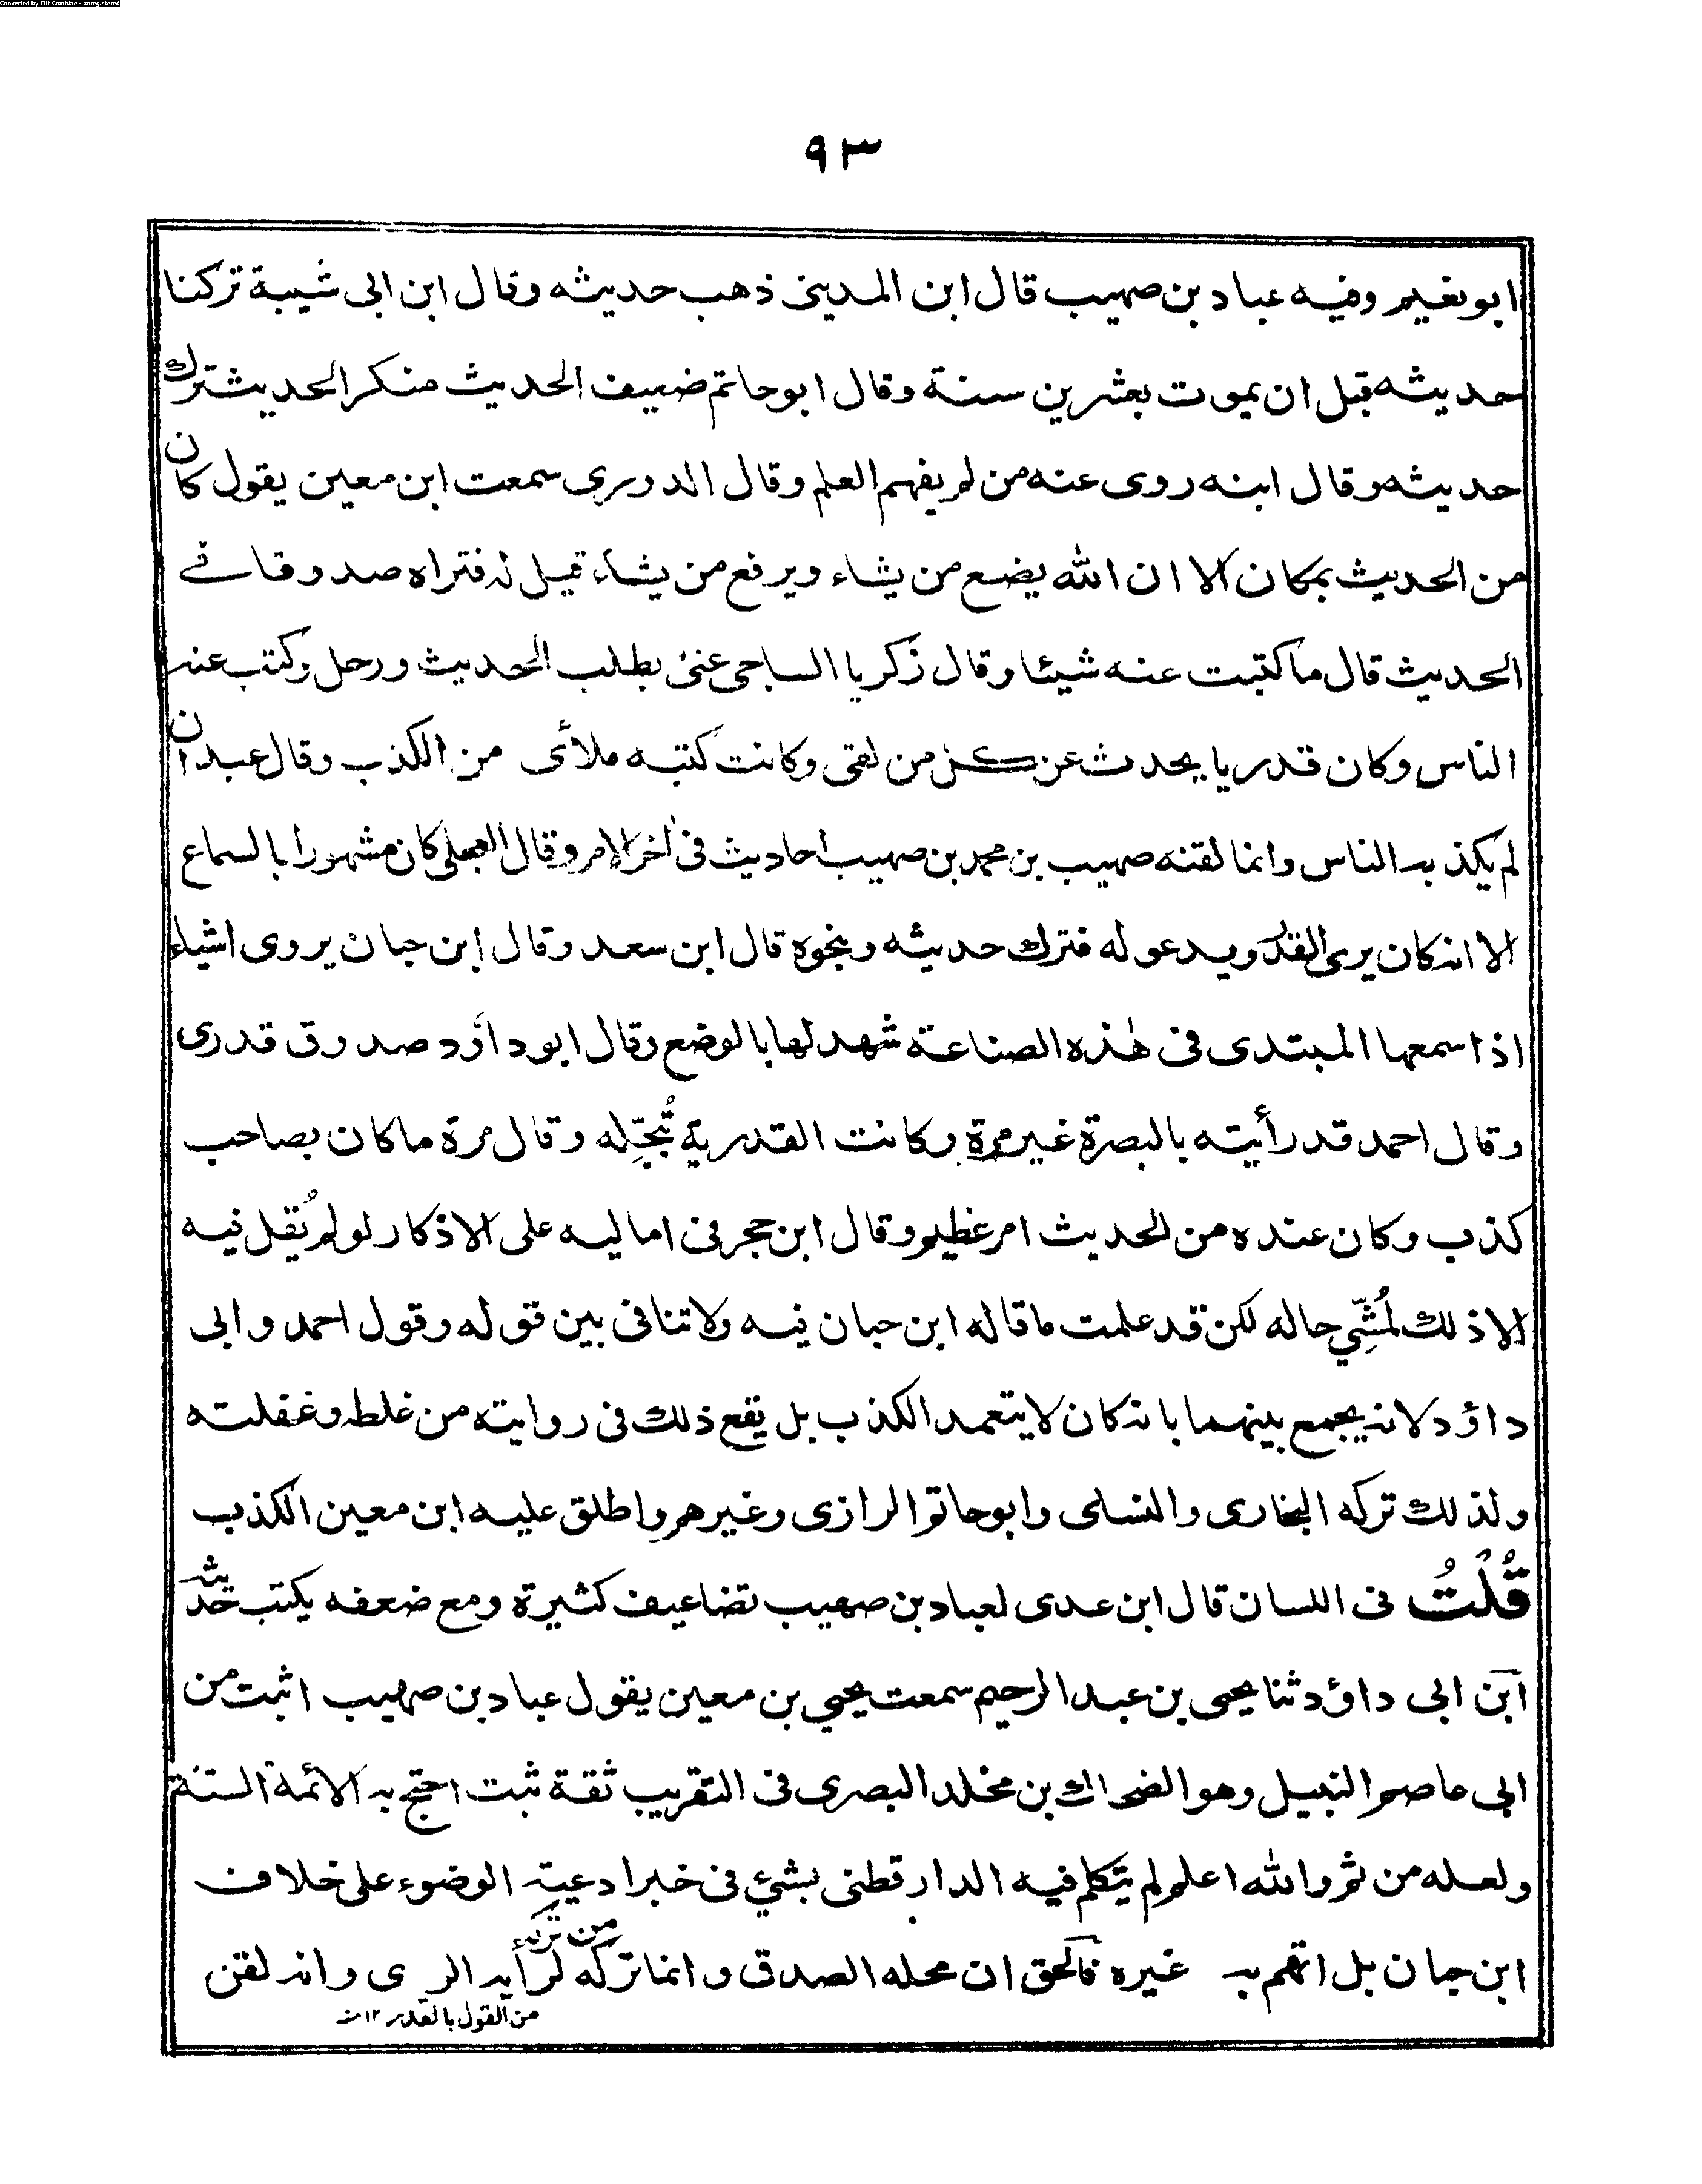 Converted by Tiff Combine - unregistered
٩٣
ابو نعيم وفيه عباد بن صهيب قال ابن المدينى ذهب حديثه وقال ابن ابى شيبة تركنا
حديثه قبل ان يموت بعشرين سنة وقال ابو حاتم ضعيف الحديث منكر الحديث ترك
حديثه وقال ابنه روى عنه من لم يفهم العلم وقال الدورى سمعت ابن معين يقول كان
من الحديث بمكان الا ان الله يضع من يشاء ويرفع من يشاء قيل له فتراه صدوقا في
الحديث قال ما كتبت عنه شيئا وقال زكريا الساجى عنى بطلب الحديث ورحل وكتب عنه
الناس وكان قدريا يحدث عن كل من لقى وكانت كتبه ملأى من الكذب وقال عبدان
لم يكذبه الناس وانما لقنه صهيب بن محمد بن صهيب احاديث فى آخر الامر وقال العجلى كان مشهورا بالسماع
الا انه كان يرى القدر ويدعو له فترك حديثه وبنحوه قال ابن سعد وقال ابن حبان يروى اشياء
اذا سمعها المبتدى فى هٰذه الصناعة شهد لها بالوضع وقال ابو داؤد صدوق قدرى
وقال احمد قد رأيته بالبصرة غير مرة وكانت القدرية تُبجِّله وقال مرة ما كان بصاحب
كذب وكان عنده من الحديث امر عظيم وقال ابن حجر فى اماليه على الاذكار لو لم يُقل فيه
الا ذلك لمُشِّي حاله لكن قد علمت ما قاله ابن حبان فيه ولا تنافى بين قوله وقول احمد وابى
داؤد لانه يجمع بينهما بانه كان لا يتعمد الكذب بل يقع ذلك فى روايته من غلطه وغفلته
ولذلك تركه البخارى والنسائى وابو حاتم الرازى وغيرهم واطلق عليه ابن معين الكذب
قُلْتُ فى اللسان قال ابن عدى لعباد بن صهيب تضاعيف كثيرة ومع ضعفه يكتب حديثه
ابن ابى داؤد ثنا يحيى بن عبد الرحيم سمعت يحيي بن معين يقول عباد بن صهيب اثبت من
ابى عاصم النبيل وهو الضحاك بن مخلد البصرى فى التقريب ثقة ثبت احتج به الائمة الستة
ولعله من ثم والله اعلم لم يتكلم فيه الدارقطنى بشئ فى خبر ادعية الوضوء على خلاف
ابن حبان بل اتهم به غيره فالحق ان محله الصدق وانما تركه من تركه لرأيه الردى وانه لقن
من القول بالقدر ١٢ منه